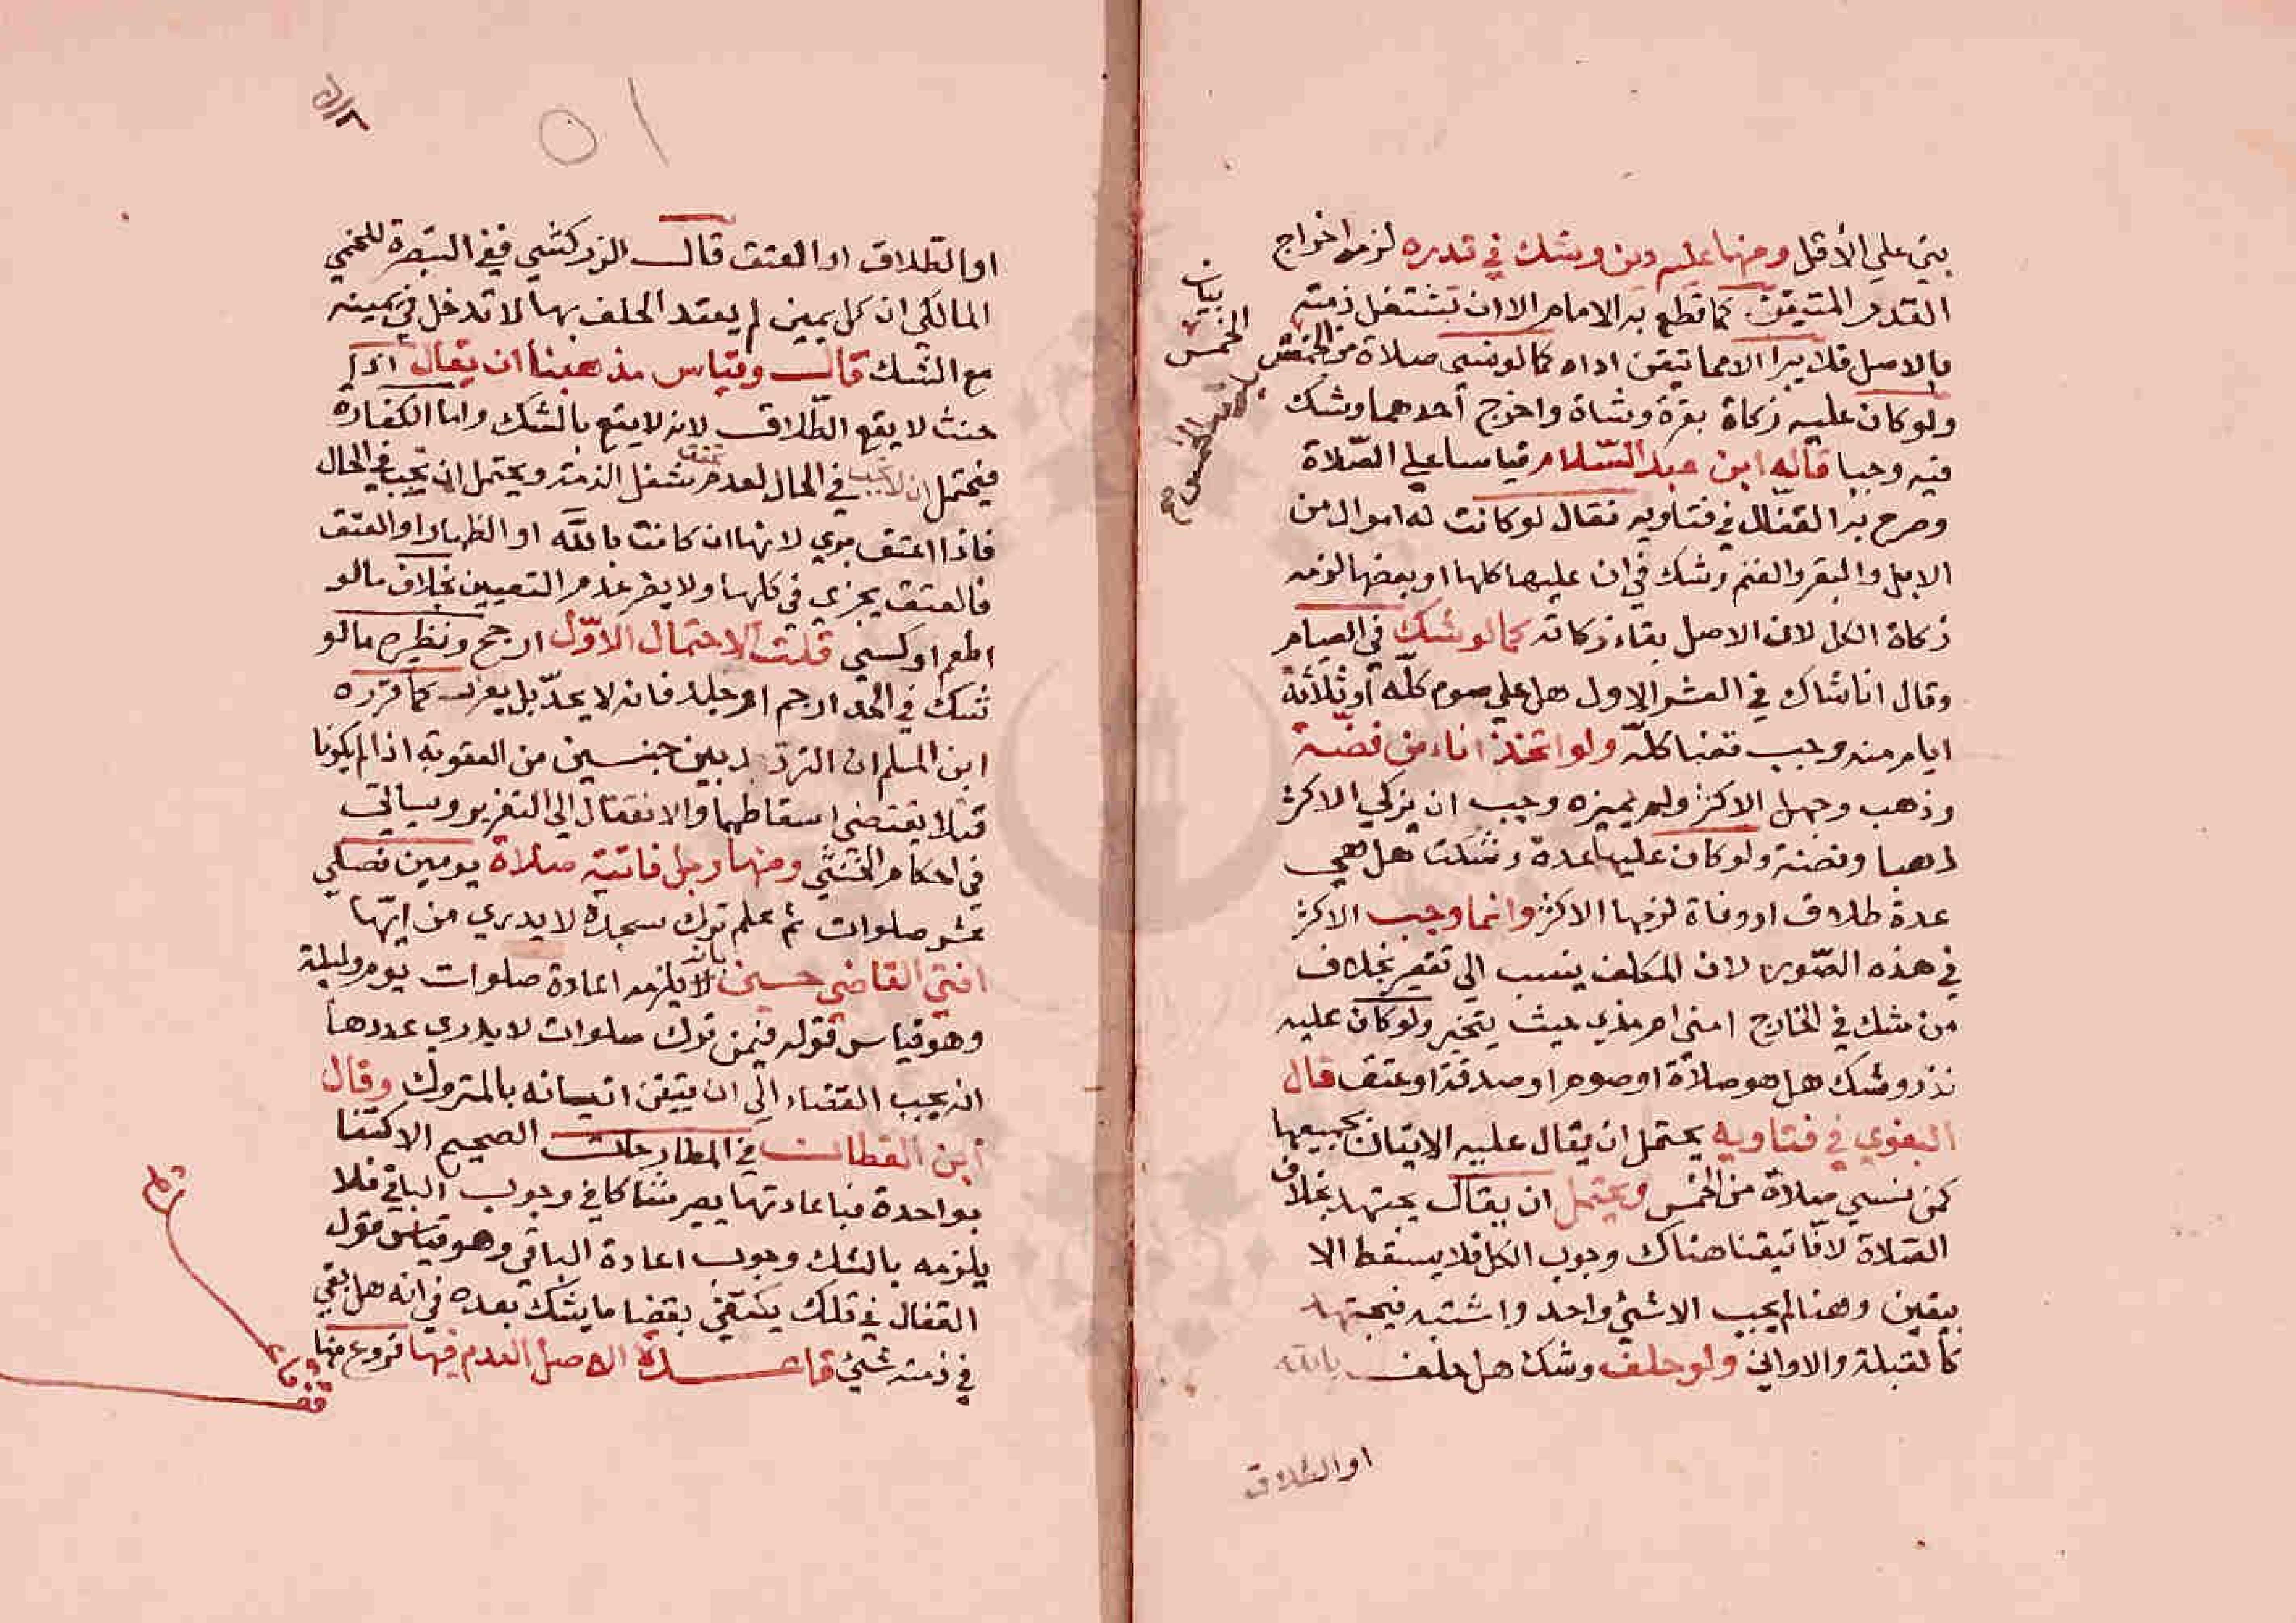 بني علي الأقل ومنها عليه دين وشك في قدره لزمه اخراج
القدر المتيقن كما قطع به الامام الا ان تشتغل ذمته
بالاصل فلا يبرا الا مما تيقن اداه كما لو نسي صلاة من الخمس
ولو كان عليه زكاة بقرة وشاة واخرج أحدهما وشك
فيه وجبا قاله ابن عبد السّلام قياسا علي الصّلاة
وصرح به القفال في فتاويه فقال لو كانت له اموال من
الابل والبقر والغنم وشك في ان عليه كلها او بعضها لزمه
زكاة الكل لان الاصل بقاء زكاته كما لو شك في الصيام
وقال انا شاك في العشر الاول هل علي صوم كلّه أو ثلاثة
ايام منه وجب قضا كلّه ولو اتخذ اناء من فضّة
وذهب وجهل الاكثر ولم يميزه وجب ان يزكي الاكثر
ذهبا وفضة ولو كان عليها عدة وشكت هل هي
عدة طلاق او وفاة لزمها الاكثر وانما وجب الاكثر
في هذه الصّور لان المكلف ينسب الي تقصير بخلاف
من شك في الخارج امني ام مذي حيث يتخير ولو كان عليه
نذر وشك هل هو صلاة او صوم او صدقة او عتق قال
البغوي في فتاويه يحتمل ان يقال عليه الاتيان بجميعها
كمن نسي صلاة من الخمس ويحتمل ان يقال يجتهد بخلاف
الصلاة لانّا تيقنا هناك وجوب الكل فلا يسقط الا
بيقين وهنا لم يجب الا شيئ واحد واشتبه فيجتهد
كالقبلة والاواني ولو حلف وشك هل حلف بالله
او الطلاق
بيان
الخمس
٥١
او الطلاق او العتق قال الزركشي ففي التبصرة للخمي
المالكي ان كل يمين لم يعتد الحلف بها لا تدخل في يمينه
مع الشك قال وقياس مذهبنا ان يقال اذا
حنث لا يقع الطّلاق لانه لا يقع بالشك واما الكفارة
فيحتمل ان لا تجب في الحال لعدم تحقق شغل الذمة ويحتمل ان تجب في الحال
فاذا اعتق بري لانها ان كانت بالله او الظهار او العتق
فالعتق يجزي في كلها ولا يضر عدم التعيين بخلاف ما لو
اطعم او كسي قلت الاحتمال الاوّل ارجح ونظيره ما لو
شك في الحد ارجم ام جلد فانه لا يحدّ بل يعزر كما قرره
ابن المسلم ان التردد بين جنسين من العقوبة اذا لم يكونا
قتلا يقتضي اسقاطهما والانتقال الي التعزير وسياتي
في احكام الخنثي ومنها رجل فاتته صلاة يومين فصلي
عشر صلوات ثم علم ترك سجدة لا يدري من ايّها
افتي القاضي حسين بانه يلزمه اعادة صلوات يوم وليلة
وهو قياس قوله فيمن ترك صلوات لا يدري عددها
انه يجب القضاء الي ان يتيقن اتيانه بالمتروك وقال
ابن القطان في المطارحات الصحيح الاكتفا
بواحدة فباعادتها يصير شاكا في وجوب الباقي فلا
يلزمه بالشك وجوب اعادة الباقي وهو قياس قول
القفال في تلك يكتفي بقضا ما يشك بعده في انه هل بقي
في ذمته شيئ قاعدة الاصل العدم فيها فروع منها